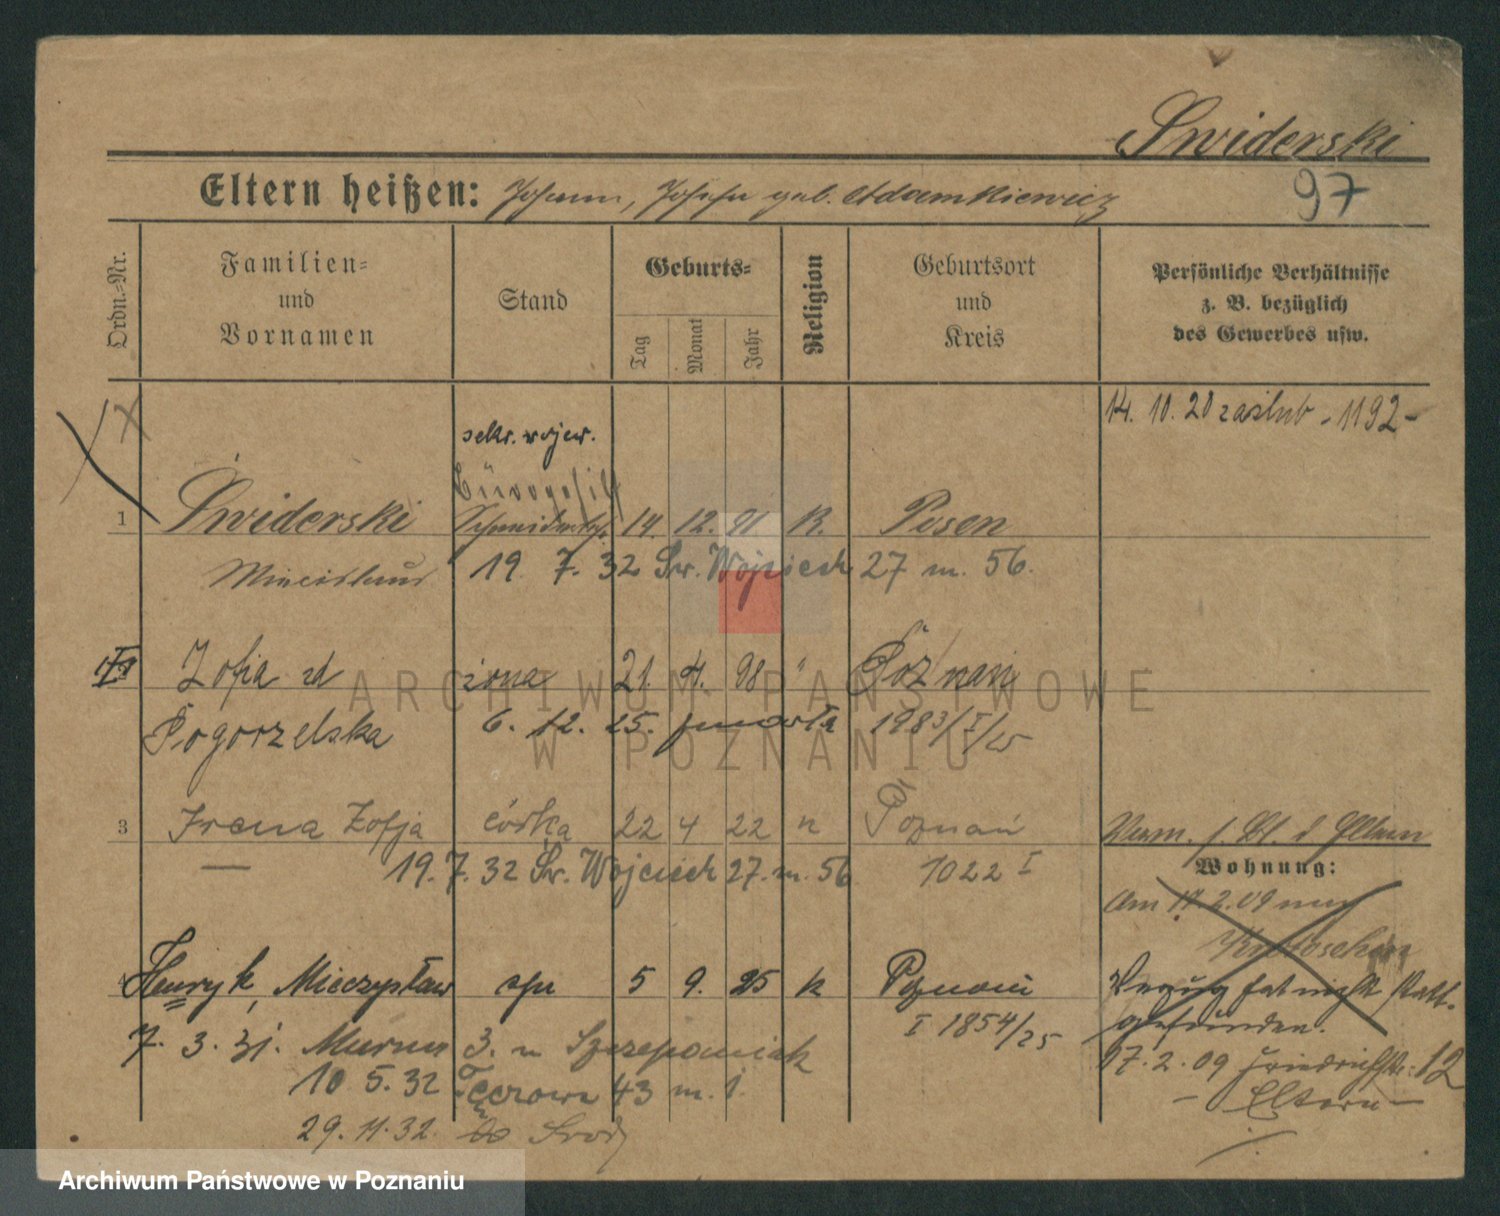 Swiderski
Eltern heißen: Johann, Josefa geb. Adamkiewicz
97
Ordn.-Nr.
Familien-
und
Vornamen
Stand
Geburts-
Tag
Monat
Jahr
Religion
Geburtsort
und
Kreis
Persönliche Verhältnisse
z. B. bezüglich
des Gewerbes usw.
14. 10. 20 zaślub - 1192 -
sekr. wojew.
Bürogehilf
1 Świderski 14. 12. 91. K. Posen
19. 7. 32 Św. Wojciech 27 m. 56.
Zofia zd żona 21. 4. 98 " Poznań
Pogorzelska 6. 12. 25. zmarła 1983/I/25
3 Irena Zofja córka 22 4 22 k Poznań
— 19. 7. 32 Św. Wojciech 27. m. 56
1022 I
Wohnung:
Am 17. 2. 09 nach
Krotoschin
Henryk, Mieczysław syn 5 9. 25 k Poznań
I 1854/25
Verzug hat nicht statt-
gefunden.
7. 3. 31. 3. u Szczepaniak
17. 2. 09 Friedrichstr. 12
- Eltern -
10 5. 32 43 m. 1.
29. 11. 32. do
ARCHIWUM PAŃSTWOWE
W POZNANIU
Archiwum Państwowe w Poznaniu